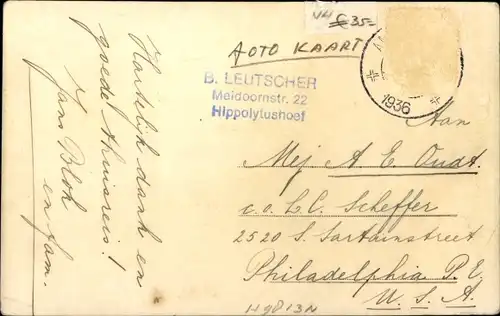 N4 € 35=
FOTO KAART
1936
B. LEUTSCHER
Meidoornstr. 22
Hippolytushoef
Hartelijk dank en
goede thuisreis!
Jans Blok
en fam.
Aan
Mej A. E. Oudt.
c.o. L.C. Scheffer
2520 S. Sartainstreet
Philadelphia P.E.
U.S.A.
H9813N